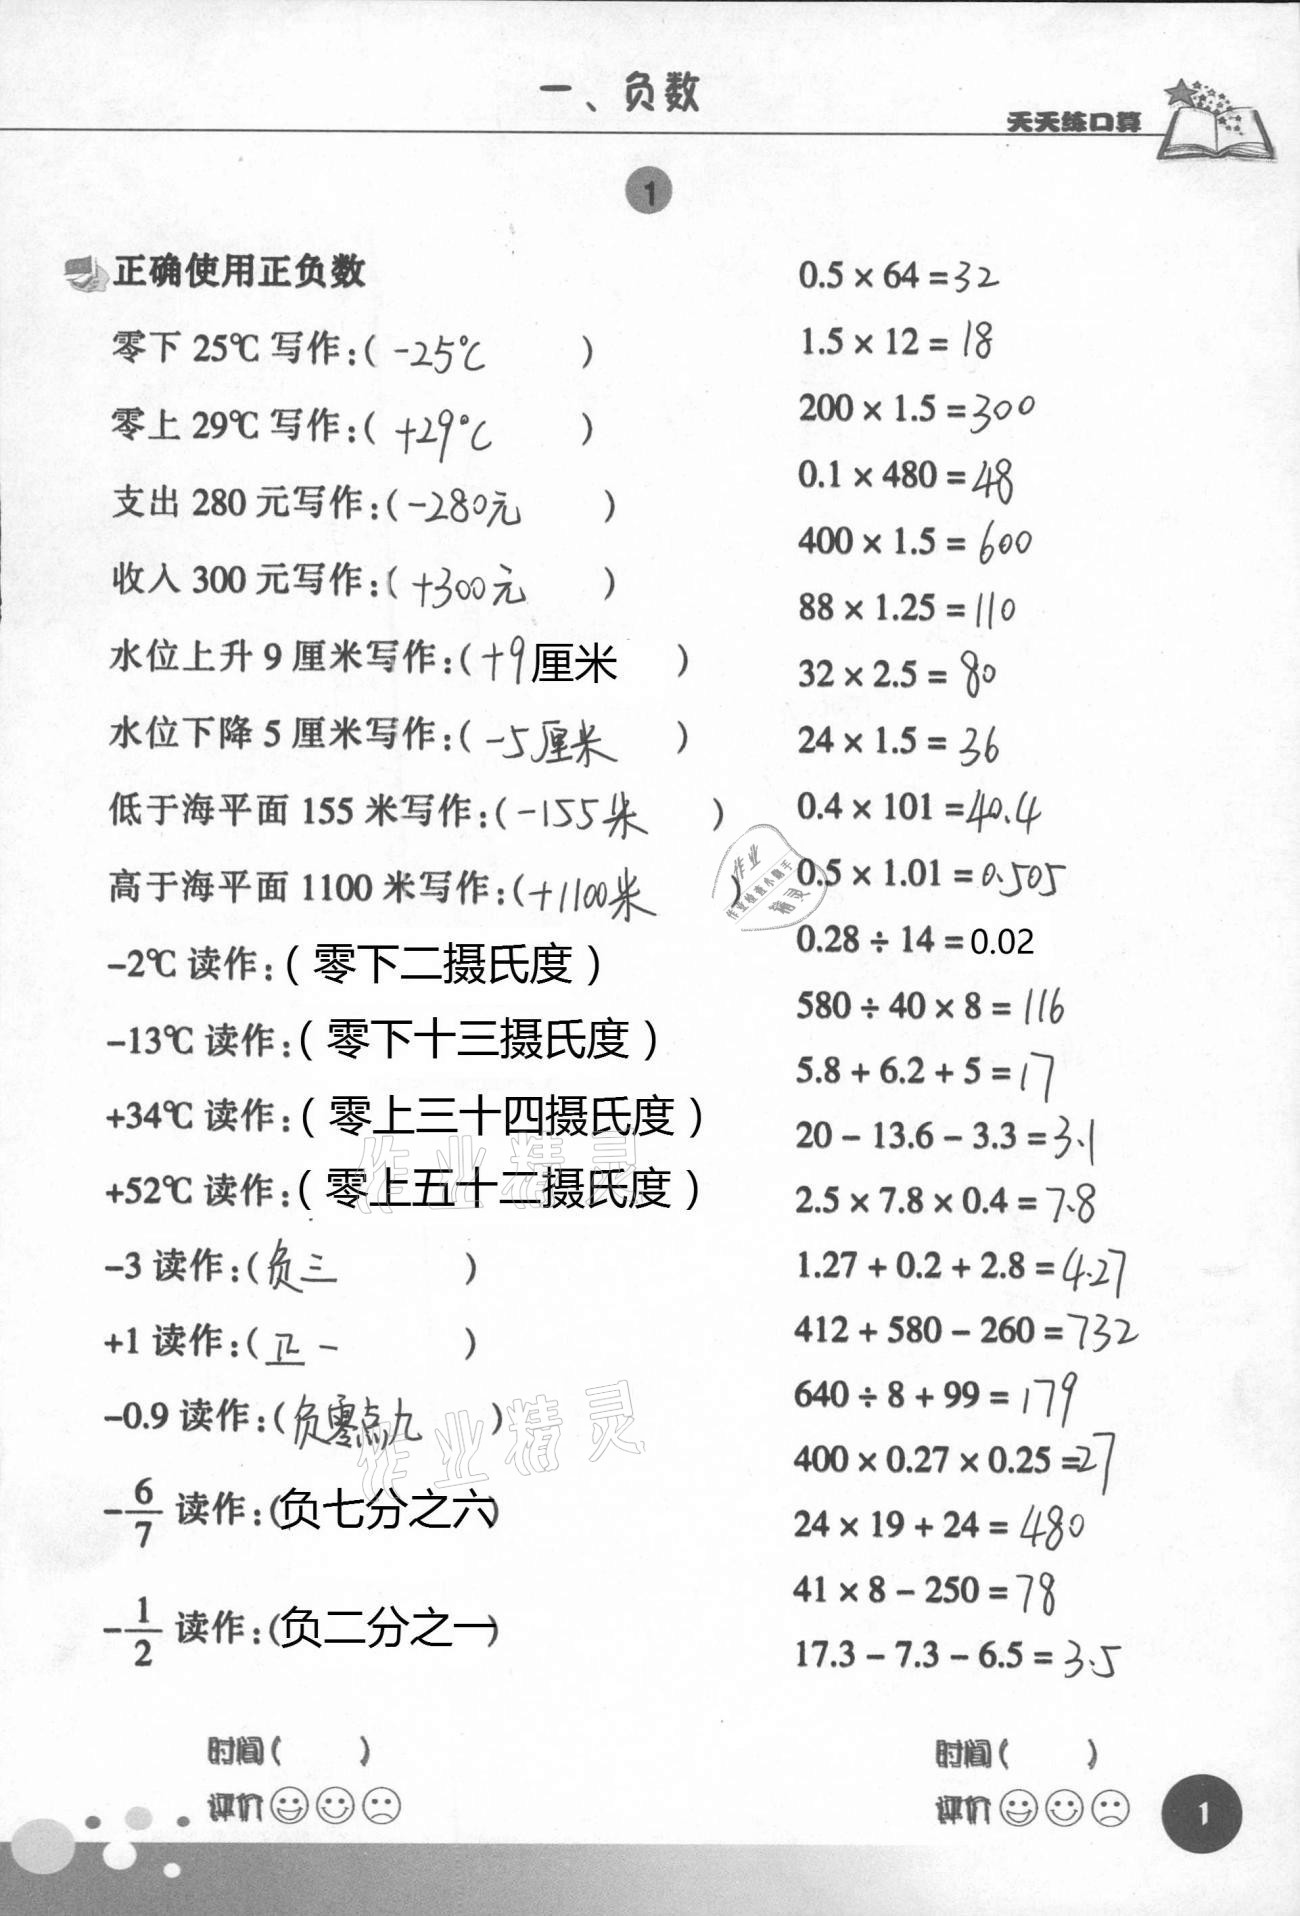 一、负数
天天练口算
1
正确使用正负数
零下 25℃ 写作:( -25℃ )
零上 29℃ 写作:( +29℃ )
支出 280 元写作:( -280元 )
收入 300 元写作:( +300元 )
水位上升 9 厘米写作:( +9厘米 )
水位下降 5 厘米写作:( -5厘米 )
低于海平面 155 米写作:( -155米 )
高于海平面 1100 米写作:( +1100米 )
-2℃ 读作:( 零下二摄氏度 )
-13℃ 读作:( 零下十三摄氏度 )
+34℃ 读作:( 零上三十四摄氏度 )
+52℃ 读作:( 零上五十二摄氏度 )
-3 读作:( 负三 )
+1 读作:( 正一 )
-0.9 读作:( 负零点九 )
-6/7 读作:(负七分之六)
-1/2 读作:(负二分之一)
时间( )
评价
0.5 × 64 = 32
1.5 × 12 = 18
200 × 1.5 = 300
0.1 × 480 = 48
400 × 1.5 = 600
88 × 1.25 = 110
32 × 2.5 = 80
24 × 1.5 = 36
0.4 × 101 = 40.4
0.5 × 1.01 = 0.505
0.28 ÷ 14 = 0.02
580 ÷ 40 × 8 = 116
5.8 + 6.2 + 5 = 17
20 - 13.6 - 3.3 = 3.1
2.5 × 7.8 × 0.4 = 7.8
1.27 + 0.2 + 2.8 = 4.27
412 + 580 - 260 = 732
640 ÷ 8 + 99 = 179
400 × 0.27 × 0.25 = 27
24 × 19 + 24 = 480
41 × 8 - 250 = 78
17.3 - 7.3 - 6.5 = 3.5
时间( )
评价
1
作业
作业检查小助手
精灵
作业精灵
作业精灵